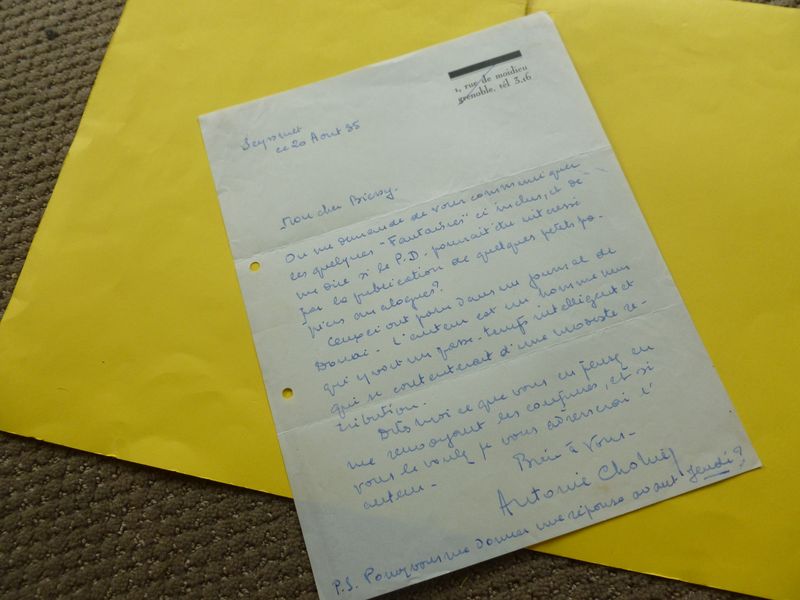 1, rue de moidieu
grenoble. tél 3.16
Seyssinet
ce 20 Aout 35
Mon cher Biessy.
On me demande de vous communiquer
ces quelques "Fantaisies" ci inclus, et de
me dire si le P.D. pourrait être intéressé
par la publication de quelques petits pa-
piers analogues?
Ceux ci ont paru dans un journal de
Douai - L'auteur est un homme
qui y voit un passe-temps intelligent et
qui se contenterait d'une modeste ré-
tribution.
Dites moi ce que vous en pensez en
me renvoyant les coupures, et si
vous le voulez je vous adresserai l'
auteur -
Bien à vous -
Antonie
P.S. Pouvez vous me donner une réponse avant Jeudi?